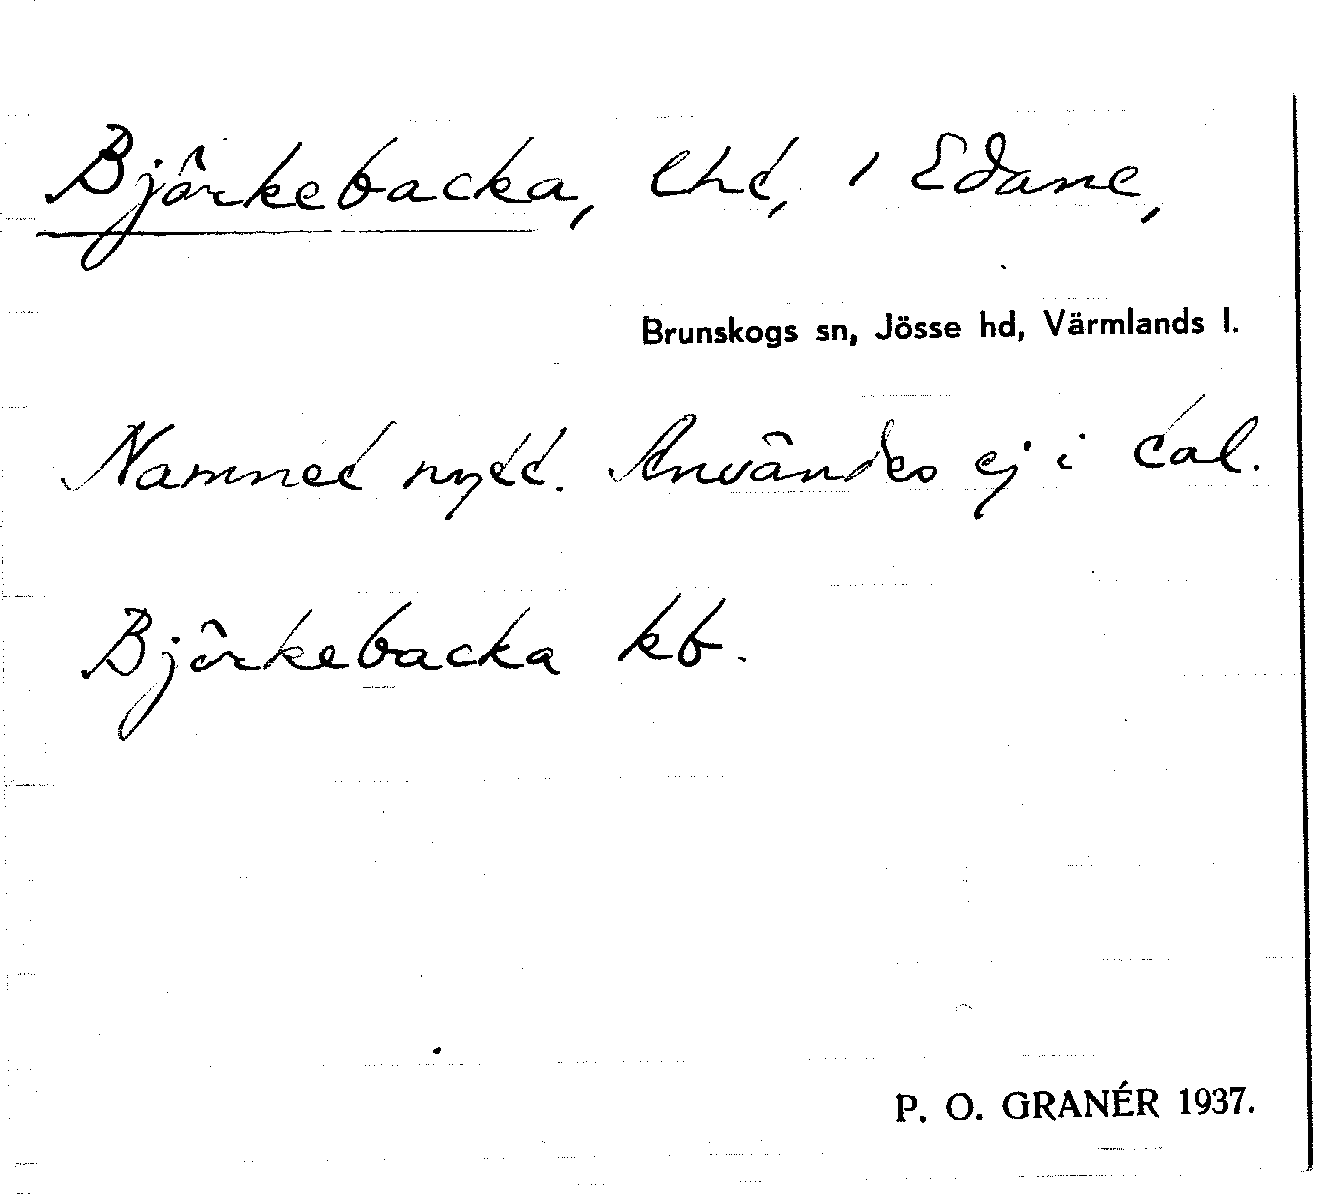 Björkebacka, lht, i Edane,
Brunskogs sn, Jösse hd, Värmlands l.
Namnet nytt. Användes ej i tal.
Björkebacka kb.
P. O. GRANÉR 1937.